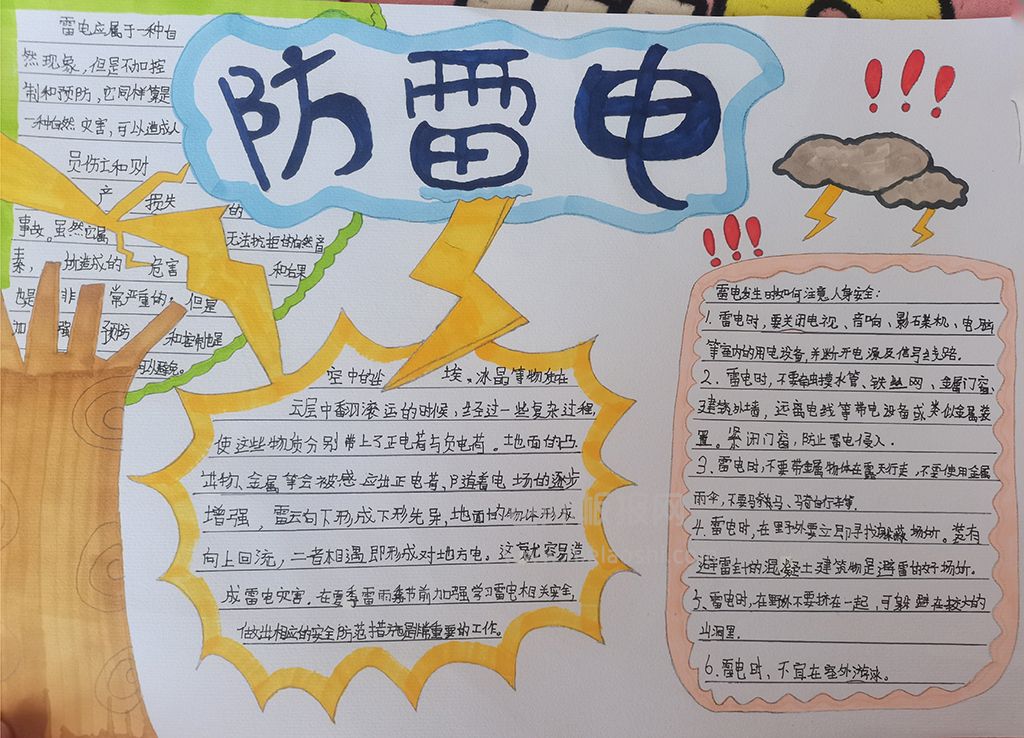 防雷电
雷电应属于一种自
然现象，但是不加控
制和预防，它同样算是
一种自然灾害，可以造成人
员伤亡和财
产 损失 的
事故。虽然它属 无法抗拒的自然音
素， 所造成的 危害 和后果
也是 非 常严重的；但是
加强 预防 和控制也是
可以避免。
空中的尘 埃、冰晶等物质在
云层中翻滚运的时候，经过一些复杂过程，
使这些物质分别带上了正电荷与负电荷。地面的凸
出物、金属等会被感应出正电荷，随着电场的逐步
增强，雷云向下形成下形先导，地面的物体形成
向上回流，二者相遇即形成对地放电。这就容易造
成雷电灾害。在夏季雷雨季节前加强学习雷电相关安全，
做出相应的安全防范措施也是非常重要的工作。
雷电发生时如何注意人身安全：
1.雷电时，要关闭电视、音响、影碟机、电脑
等室内的用电设备，并断开电源及信号线路.
2.雷电时，不要触摸水管、铁丝网、金属门窗、
建筑外墙，远离电线等带电设备或类似金属装
置。紧闭门窗，防止雷电侵入.
3.雷电时，不要带金属物体在露天行走，不要使用金属
雨伞，不要骑自行车等.
4.雷电时，在野外要立即寻找躲蔽场所。装有
避雷针的混凝土建筑物是避雷的好场所.
5.雷电时，在野外不要挤在一起，可躲避在较大的
山洞里.
6.雷电时，不宜在野外游泳。